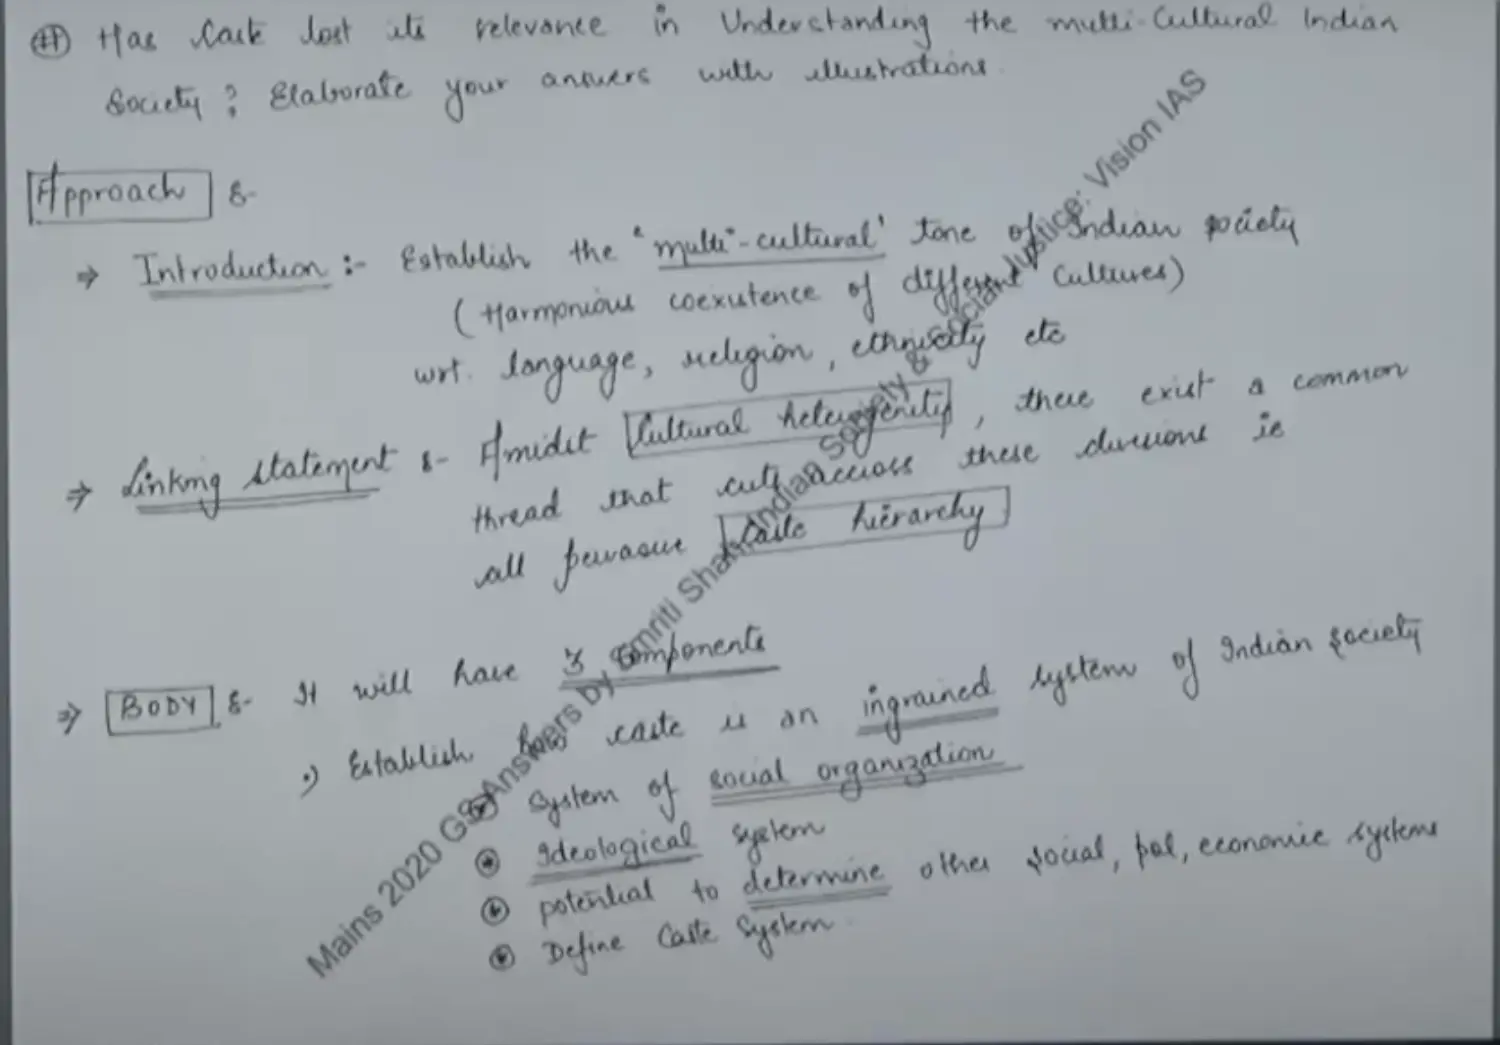 # Has Caste lost its relevance in Understanding the multi-Cultural Indian
Society? Elaborate your answers with illustrations.
Approach :-
⇒ Introduction :- Establish the 'multi-cultural' tone of Indian society
(Harmonious coexistence of different cultures)
wrt. language, religion, ethnicity etc
⇒ Linking statement :- Amidst Cultural heterogeneity, there exist a common
thread that cuts across these divisions ie
all pervasive Caste hierarchy
⇒ BODY :- It will have 3 components
•) Establish how caste is an ingrained system of Indian society
System of social organization
Ideological system
potential to determine other social, pol, economic systems
Define Caste System.
Mains 2020 GS Answers by Smriti Shah Indian Society & Social Justice: Vision IAS